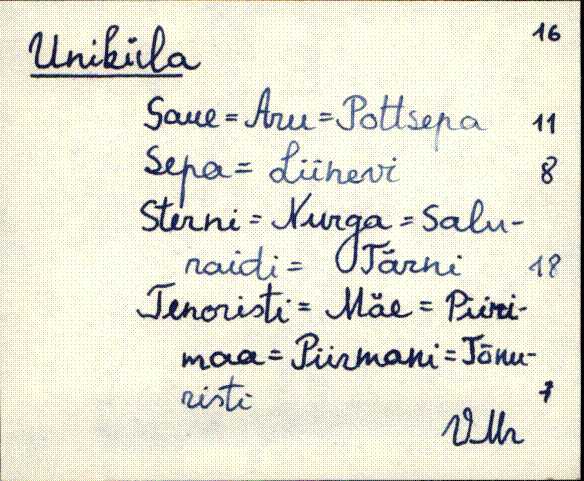 16
Uniküla
Saue = Aru = Pottsepa 11
Sepa = Liinevi 8
Sterni = Nurga = Salu-
raidi = Tärni 18
Tenoristi = Mäe = Piiri-
maa = Piirmani = Tõnu-
risti 7